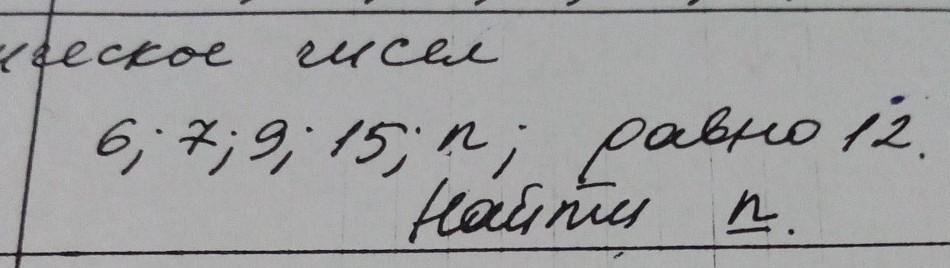 ическое чисел
6; 7; 9; 15; n; равно 12.
Найти n.